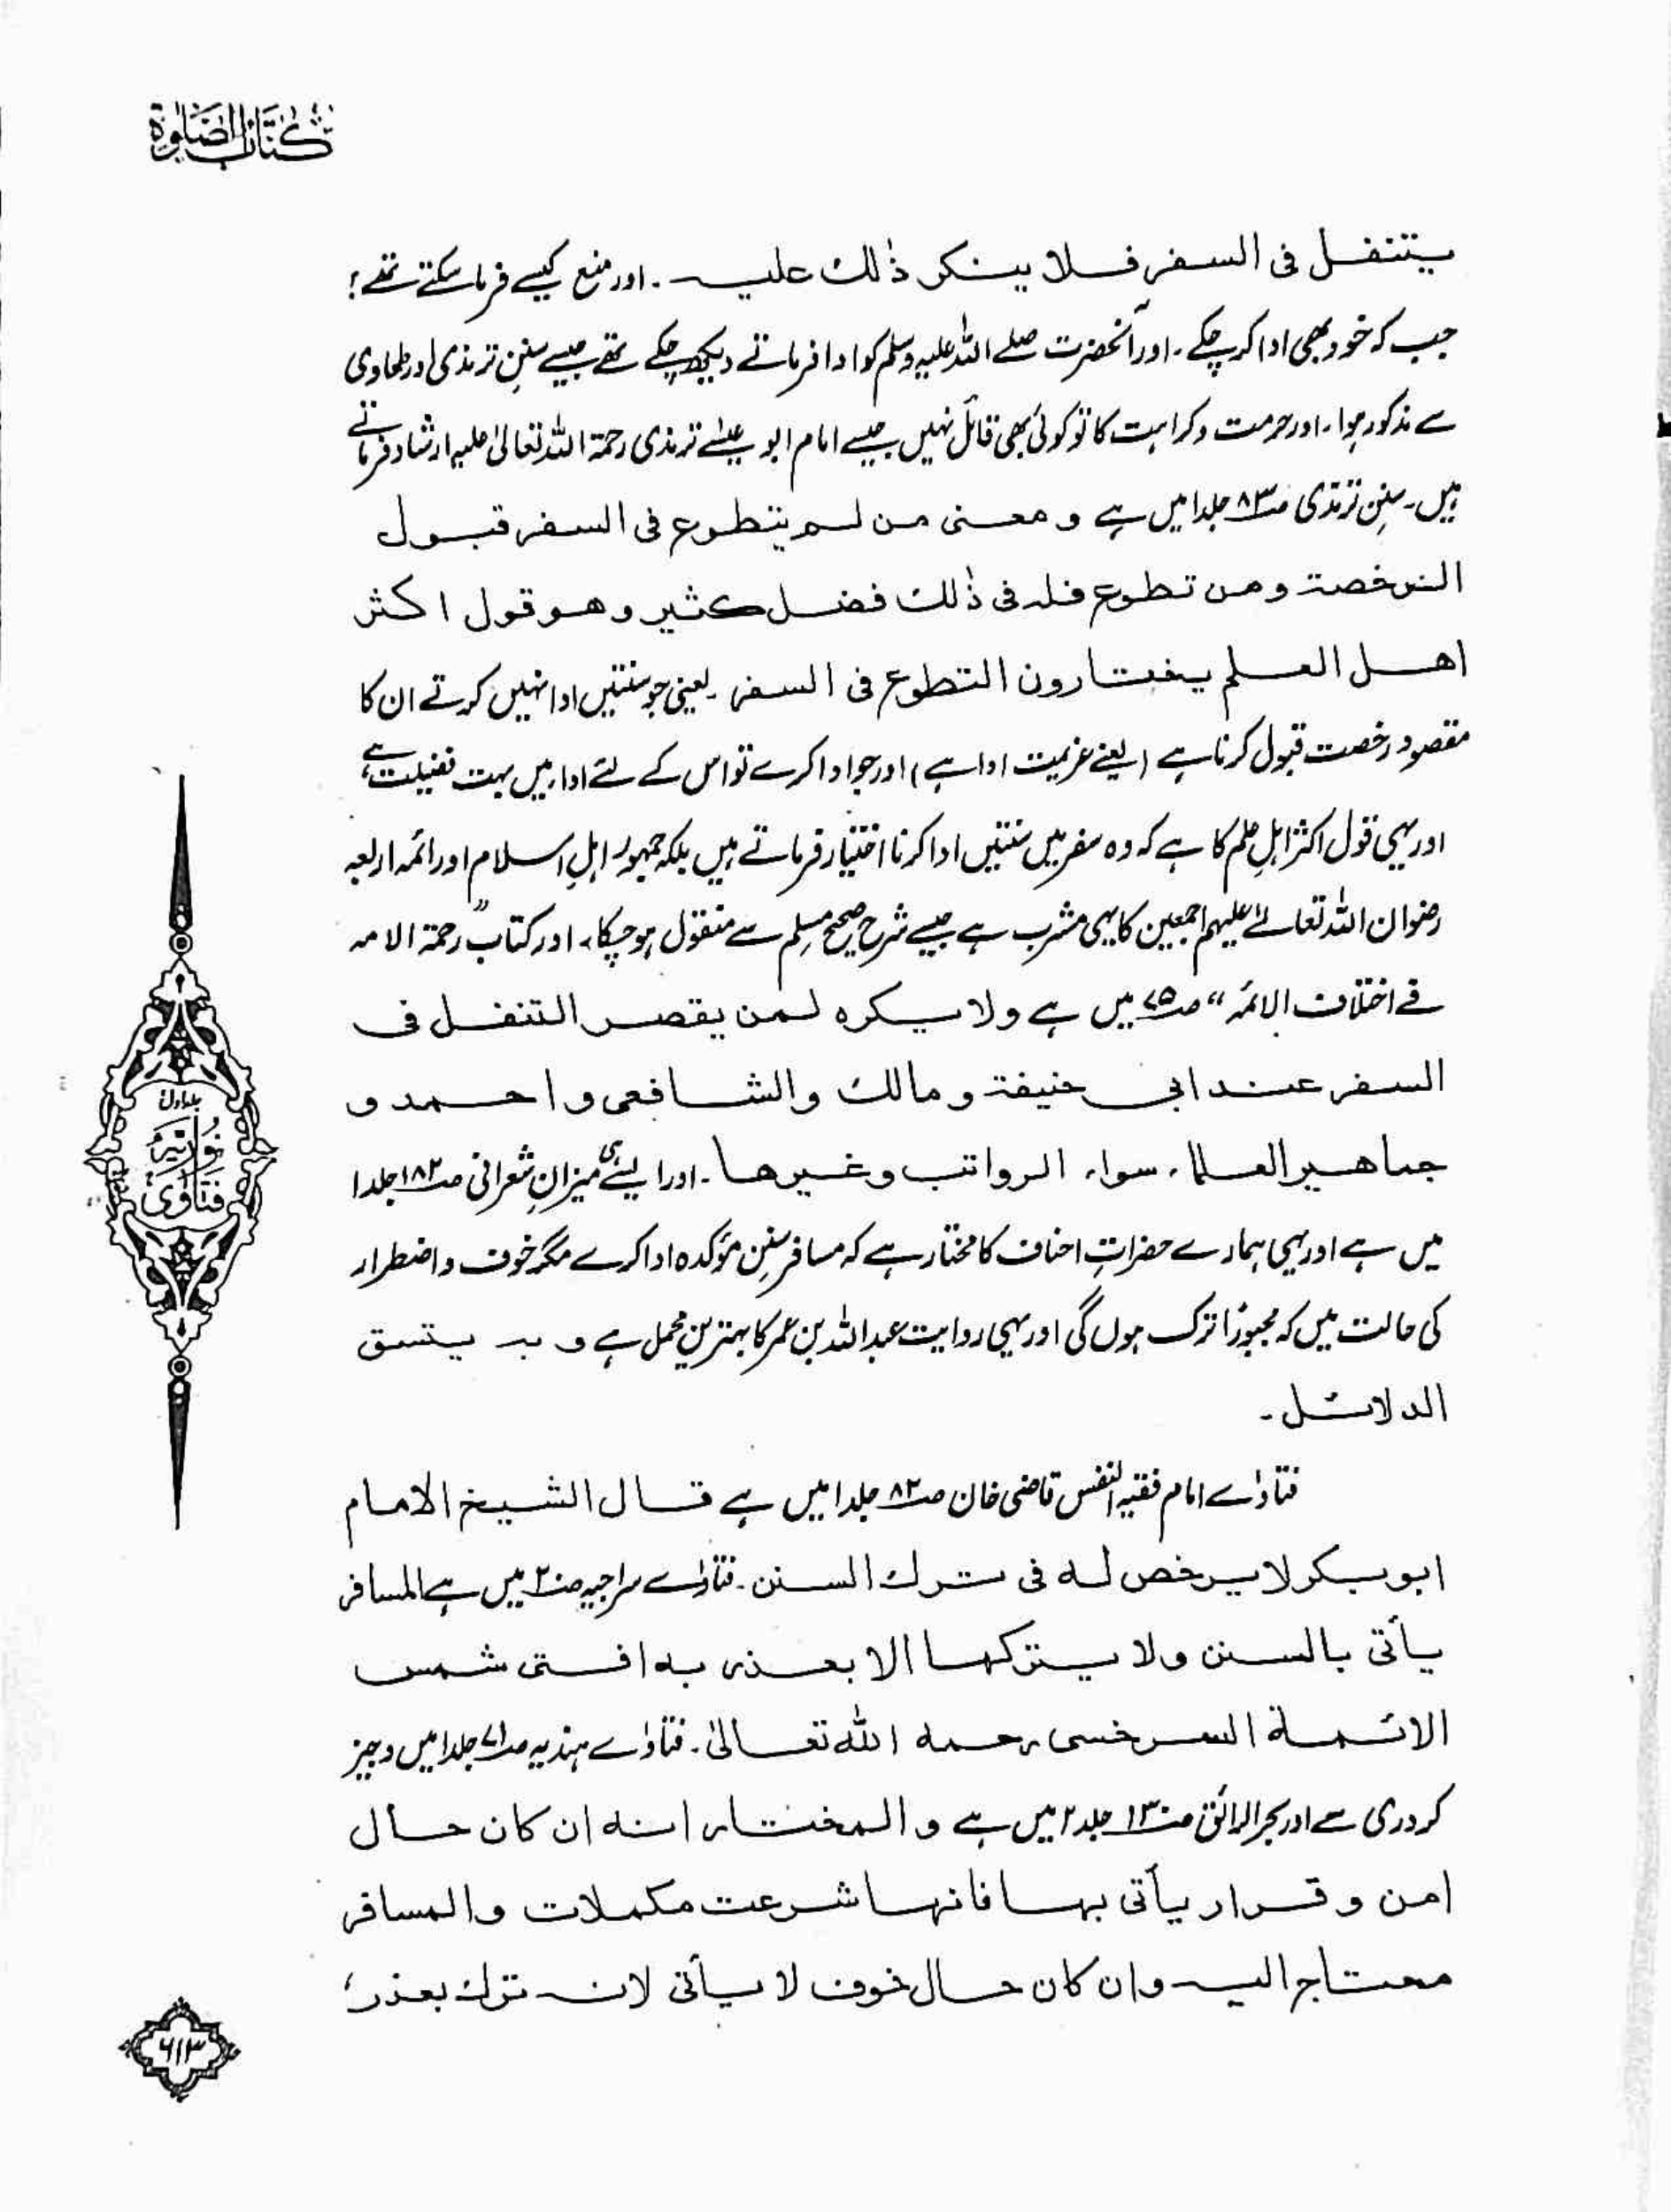 کتاب الصلوٰۃ
یتنفل فی السفر فلا ینکر ذٰلک علیہ ۔ اور منع کیسے فرما سکتے تھے؟
جب کہ خود بھی ادا کر چکے ۔ اور آنحضرت صلے اللہ علیہ وسلم کو ادا فرماتے دیکھ چکے تھے جیسے سنن ترمذی اور طحاوی
سے مذکور ہوا ۔ اور حرمت و کراہت کا تو کوئی بھی قائل نہیں جیسے امام ابو عیسٰے ترمذی رحمۃ اللہ تعالیٰ علیہ ارشاد فرماتے
ہیں ۔ سننِ ترمذی ص۸۳ جلد۱ میں ہے و معنی من لم یتطوع فی السفر قبول
الرخصۃ و من تطوع فلہ فی ذٰلک فضل کثیر و ھو قول اکثر
اھل العلم یختارون التطوع فی السفر ۔ یعنی جو سنتیں ادا نہیں کرتے ان کا
مقصود رخصت قبول کرنا ہے (یعنے عزیمت ادا ہے) اور جو ادا کرے تو اس کے لئے ادا میں بہت فضیلت ہے
اور یہی قول اکثر اہلِ علم کا ہے کہ وہ سفر میں سنتیں ادا کرنا اختیار فرماتے ہیں بلکہ جمہور اہلِ اسلام اور ائمہ اربعہ
رضوان اللہ تعالےٰ علیہم اجمعین کا یہی مشرب ہے جیسے شرح صحیح مسلم سے منقول ہو چکا ، اور کتاب ”رحمۃ الامہ
فے اختلاف الائمہ“ ص۷۵ میں ہے ولا یکرہ لمن یقصر التنفل فی
السفر عند ابی حنیفۃ و مالک والشافعی و احمد و
جماھیر العلماء سواء الرواتب وغیرھا ۔ اور ایسے ہی میزانِ شعرانی ص۱۸۲ جلد۱
میں ہے اور یہی ہمارے حضراتِ احناف کا مختار ہے کہ مسافر سننِ مؤکدہ ادا کرے مگر خوف و اضطرار
کی حالت میں کہ مجبوراً ترک ہوں گی اور یہی روایت عبد اللہ بن عمر کا بہترین محمل ہے و بہ یتسق
الدلائل ۔
فتاوٰے امام فقیہ النفس قاضی خان ص۸۲ جلد۱ میں ہے قال الشیخ الامام
ابو بکر لا یرخص لہ فی ترک السنن ۔ فتاوٰے سراجیہ ص۲۰ میں ہے المسافر
یأتی بالسنن ولا یترکھا الا بعذر بہ افتی شمس
الائمۃ السرخسی رحمہ اللہ تعالیٰ ۔ فتاوٰے ہندیہ ص۷۱ جلد۱ میں وجیز
کردری سے اور بحر الرائق ص۱۳۰ جلد۲ میں ہے و المختار انہ ان کان حال
امن و قرار یأتی بہا فانہا شرعت مکملات والمسافر
محتاج الیہ وان کان حال خوف لا یأتی لانہ ترک بعذر؛
جلد اول
فتاویٰ نوریہ
۶۱۳